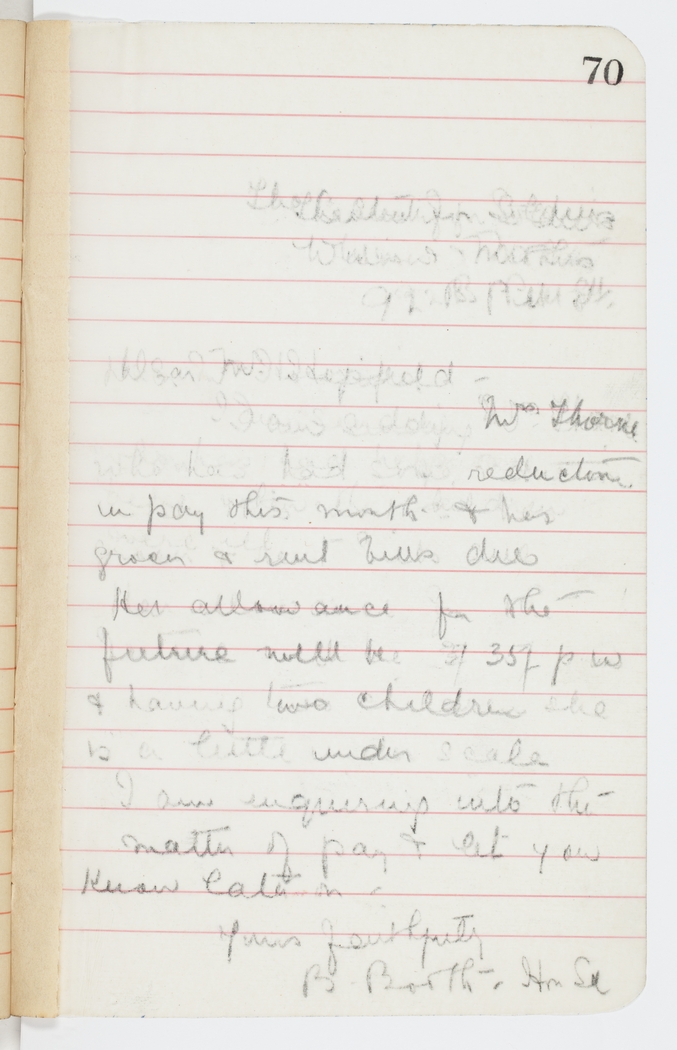 70
The
Wives & Mothers
92 Pitt St.
Dear Mr
I am sending Mrs. Thorne
who has had some reductions
in pay this month & her
grocer & rent bills due
Her allowance for the
future will be 35/ p w
& having two children she
is a little under scale
I am enquiring into the
matter of pay & let you
know later on -
Yours faithfully
B. Booth - Hon Se